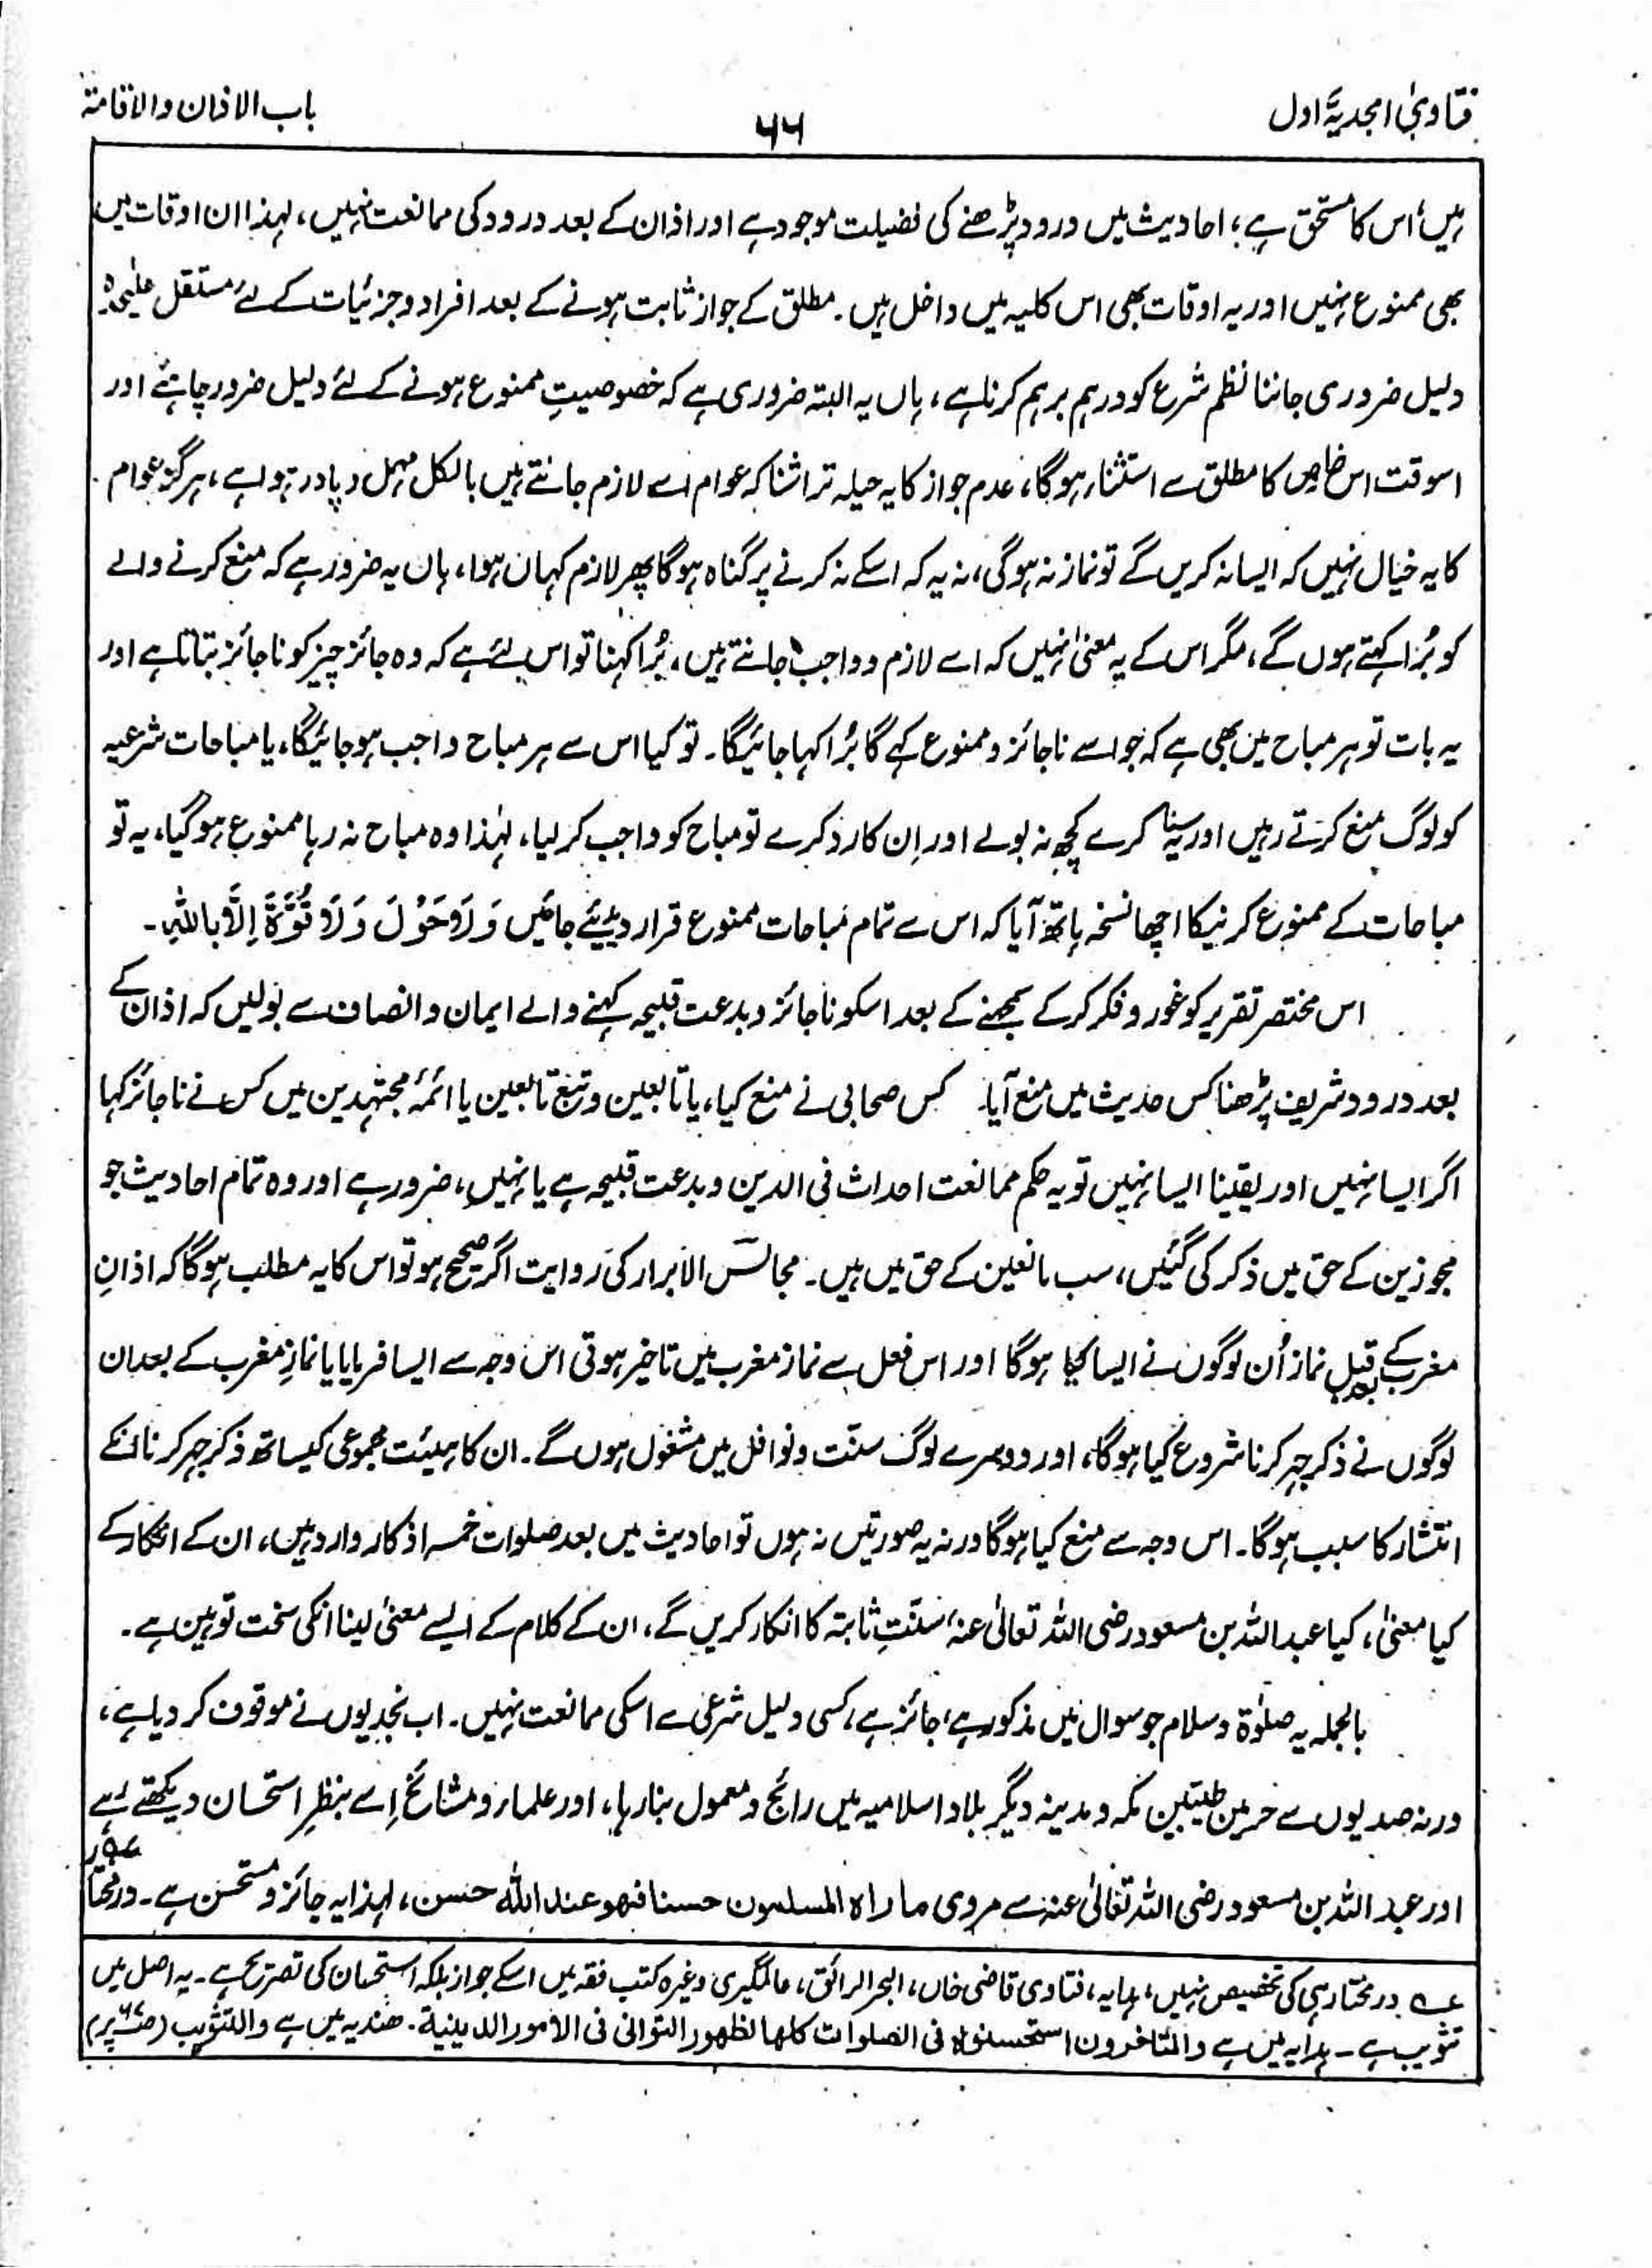 فتاویٰ امجدیہ اول
۶۶
باب الاذان والاقامة
ہیں، اس کا مستحق ہے، احادیث میں درود پڑھنے کی فضیلت موجود ہے اور اذان کے بعد درود کی ممانعت نہیں، لہذا ان اوقات میں
بھی ممنوع نہیں اور یہ اوقات بھی اس کلیہ میں داخل ہیں۔ مطلق کے جواز ثابت ہونے کے بعد افراد و جزئیات کے لئے مستقل علیحدہ
دلیل ضروری جاننا نظم شرع کو درہم برہم کرنا ہے، ہاں یہ البتہ ضروری ہے کہ خصوصیتِ ممنوع ہونے کے لئے دلیل ضرور چاہئے اور
اسوقت اس خاص کا مطلق سے استثنار ہوگا، عدم جواز کا یہ حیلہ تراشنا کہ عوام اسے لازم جانتے ہیں بالکل مہمل و پادر ہوا ہے، ہرگز عوام
کا یہ خیال نہیں کہ ایسا نہ کریں گے تو نماز نہ ہوگی، نہ یہ کہ اسکے نہ کرنے پر گناہ ہوگا پھر لازم کہاں ہوا، ہاں یہ ضرور ہے کہ منع کرنے والے
کو بُرا کہتے ہوں گے، مگر اس کے یہ معنیٰ نہیں کہ اسے لازم و واجب جانتے ہیں، بُرا کہنا تو اس لئے ہے کہ وہ جائز چیز کو ناجائز بتاتا ہے اور
یہ بات تو ہر مباح میں بھی ہے کہ جو اسے ناجائز و ممنوع کہے گا بُرا کہا جائیگا۔ تو کیا اس سے ہر مباح واجب ہو جائیگا، یا مباحات شرعیہ
کو لوگ منع کرتے رہیں اور یہ سنا کرے کچھ نہ بولے اور اِن کا رد کرے تو مباح کو واجب کر لیا، لہٰذا وہ مباح نہ رہا ممنوع ہوگیا، یہ تو
مباحات کے ممنوع کرنیکا اچھا نسخہ ہاتھ آیا کہ اس سے تمام مباحات ممنوع قرار دیئے جائیں وَلَاحَوْلَ وَلَاقُوَّةَ اِلَّا بِاللّٰہِ۔
اس مختصر تقریر کو غور و فکر کر کے سمجھنے کے بعد اسکو ناجائز و بدعت قبیحہ کہنے والے ایمان و انصاف سے بولیں کہ اذان کے
بعد درود شریف پڑھنا کس حدیث میں منع آیا۔ کس صحابی نے منع کیا، یا تابعین و تبع تابعین یا ائمۂ مجتہدین میں کس نے ناجائز کہا
اگر ایسا نہیں اور یقینا ایسا نہیں تو یہ حکم ممانعت احداث فی الدین و بدعت قبیحہ ہے یا نہیں، ضرور ہے اور وہ تمام احادیث جو
مجوزین کے حق میں ذکر کی گئیں، سب مانعین کے حق میں ہیں۔ مجالس الابرار کی روایت اگر صحیح ہو تو اس کا یہ مطلب ہوگا کہ اذانِ
مغرب کے قبل نماز اُن لوگوں نے ایسا کیا ہوگا اور اس فعل سے نماز مغرب میں تاخیر ہوتی اس وجہ سے ایسا فرمایا یا نمازِ مغرب کے بعد ان
لوگوں نے ذکر جہر کرنا شروع کیا ہوگا، اور دوسرے لوگ سنّت و نوافل میں مشغول ہوں گے۔ ان کا ہیئت مجموعی کیساتھ ذکر جہر کرنا انکے
انتشار کا سبب ہوگا۔ اس وجہ سے منع کیا ہوگا ورنہ یہ صورتیں نہ ہوں تو احادیث میں بعد صلوات خمسہ اذکار وارد ہیں، ان کے انکار کے
کیا معنیٰ، کیا عبد اللہ بن مسعود رضی اللہ تعالیٰ عنہ، سنّتِ ثابتہ کا انکار کریں گے، ان کے کلام کے ایسے معنیٰ لینا انکی سخت توہین ہے۔
بالجملہ یہ صلوٰۃ و سلام جو سوال میں مذکور ہے، جائز ہے، کسی دلیل شرعی سے اسکی ممانعت نہیں۔ اب نجدیوں نے موقوف کر دیا ہے،
ورنہ صدیوں سے حرمین طیبین مکہ و مدینہ دیگر بلاد اسلامیہ میں رائج و معمول بنا رہا، اور علمار و مشائخ اِسے بنظرِ استحسان دیکھتے رہے
اور عبد اللہ بن مسعود رضی اللہ تعالیٰ عنہ سے مروی ماراہ المسلمون حسنا فھو عند اللہ حسن، لہذا یہ جائز و مستحسن ہے۔ درمختار
عہ در مختار ہی کی تخصیص نہیں، ہدایہ، فتاوی قاضی خاں، البحر الرائق، عالمگیری وغیرہ کتب فقہ میں اسکے جواز بلکہ استحسان کی تصریح ہے۔ یہ اصل میں
تثویب ہے۔ ہدایہ میں ہے والمتاخرون استحسنوہ فی الصلوات کلھا لظھور التوانی فی الامور الدینیة۔ ھندیہ میں ہے والتثویب (ص۶۷ پر)